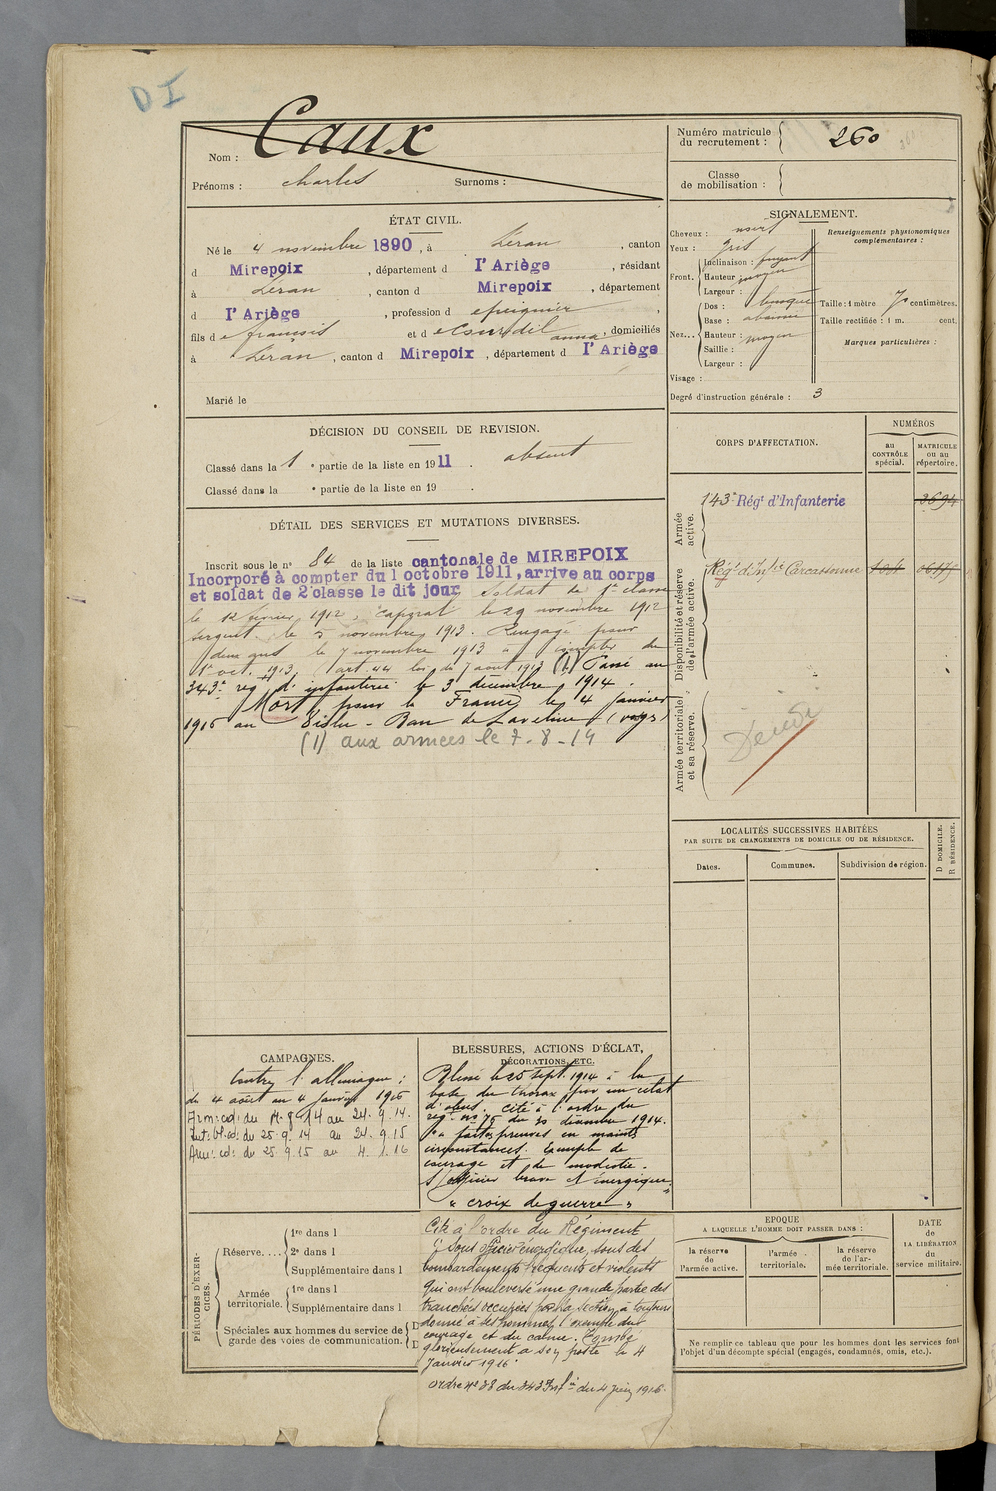 DI
Nom : Caux
Prénoms : charles Surnoms :
ÉTAT CIVIL.
Né le 4 novembre 1890, à Léran, canton
d Mirepoix, département d l'Ariège, résidant
à Léran, canton d Mirepoix, département
d l'Ariège, profession d epicier,
fils de françois et de anna, domiciliés
à Léran, canton d Mirepoix, département d l'Ariège
Marié le
DÉCISION DU CONSEIL DE REVISION.
Classé dans la 1e partie de la liste en 1911. absent
Classé dans la e partie de la liste en 19 .
DÉTAIL DES SERVICES ET MUTATIONS DIVERSES.
Inscrit sous le no 84 de la liste cantonale de MIREPOIX
Incorporé à compter du 1 octobre 1911, arrive au corps
et soldat de 2e classe le dit jour Soldat de 1e classe
le 12 février 1912, caporal le 29 novembre 1912
sergent le 5 novembre 1913. Rengagé pour
deux ans le 7 novembre 1913 à compter du
1er oct. 1913, art. 44 loi du 7 aout 1913 (1) Passé au
343e reg d'infanterie le 3 décembre 1914.
Mort pour la France le 4 Janvier
1916 au - Ban de Laveline (vosges)
(1) aux armées le 7-8-14
CAMPAGNES.
Contre l'allemagne :
du 4 août au 4 Janvier 1916
Arm: cd: du 14.8.14 au 24.9.14.
Int: bl. cd: du 25.9.14 au 24.9.15
Arm: cd: du 25.9.15 au 4.1.16
BLESSURES, ACTIONS D'ÉCLAT,
DÉCORATIONS, ETC.
Blessé le 25 sept. 1914 à la
base du thorax par un éclat
d'obus. Cité à l'ordre du
reg. no 75 du 30 décembre 1914.
a fait preuves en maintes
circonstances. Exemple de
courage et de modestie.
S/officier brave et énergique.
" croix de guerre "
Cité à l'ordre du Régiment
" Sous officier énergique, sous des
bombardements fréquents et violents
qui ont bouleversé une grande partie des
tranchées occupées par la section, a toujours
donné à ses hommes l'exemple du
courage et du calme. Tombé
glorieusement à son poste le 4
Janvier 1916"
ordre no 38 du 343e Infie du 4 1916.
PÉRIODES D'EXERCICES.
Réserve.... 1re dans l
2e dans l
Supplémentaire dans l
Armée territoriale. 1re dans l
Supplémentaire dans l
Spéciales aux hommes du service de
garde des voies de communication.
Numéro matricule
du recrutement : 260
Classe
de mobilisation :
SIGNALEMENT.
Cheveux : noirs
Yeux : gris
Front. Inclinaison : fuyant
Hauteur : moyen
Largeur :
Nez... Dos : busqué
Base : abaissé
Hauteur : moyen
Saillie :
Largeur :
Visage :
Degré d'instruction générale : 3
Renseignements physionomiques
complémentaires :
Taille : 1 mètre 70 centimètres.
Taille rectifiée : 1 m. cent.
Marques particulières :
CORPS D'AFFECTATION.
NUMÉROS
au
CONTRÔLE
spécial.
MATRICULE
ou au
répertoire.
Armée
active.
143e Régt d'Infanterie 3694
Disponibilité et réserve
de l'armée active.
Régt d'Infie Carcassonne
Armée territoriale
et sa réserve.
LOCALITÉS SUCCESSIVES HABITÉES
PAR SUITE DE CHANGEMENTS DE DOMICILE OU DE RÉSIDENCE.
Dates. Communes. Subdivision de région.
D DOMICILE.
R RÉSIDENCE.
EPOQUE
A LAQUELLE L'HOMME DOIT PASSER DANS :
la réserve
de
l'armée active.
l'armée
territoriale.
la réserve
de l'ar-
mée territoriale.
DATE
de
LA LIBÉRATION
du
service militaire.
Ne remplir ce tableau que pour les hommes dont les services font
l'objet d'un décompte spécial (engagés, condamnés, omis, etc.).